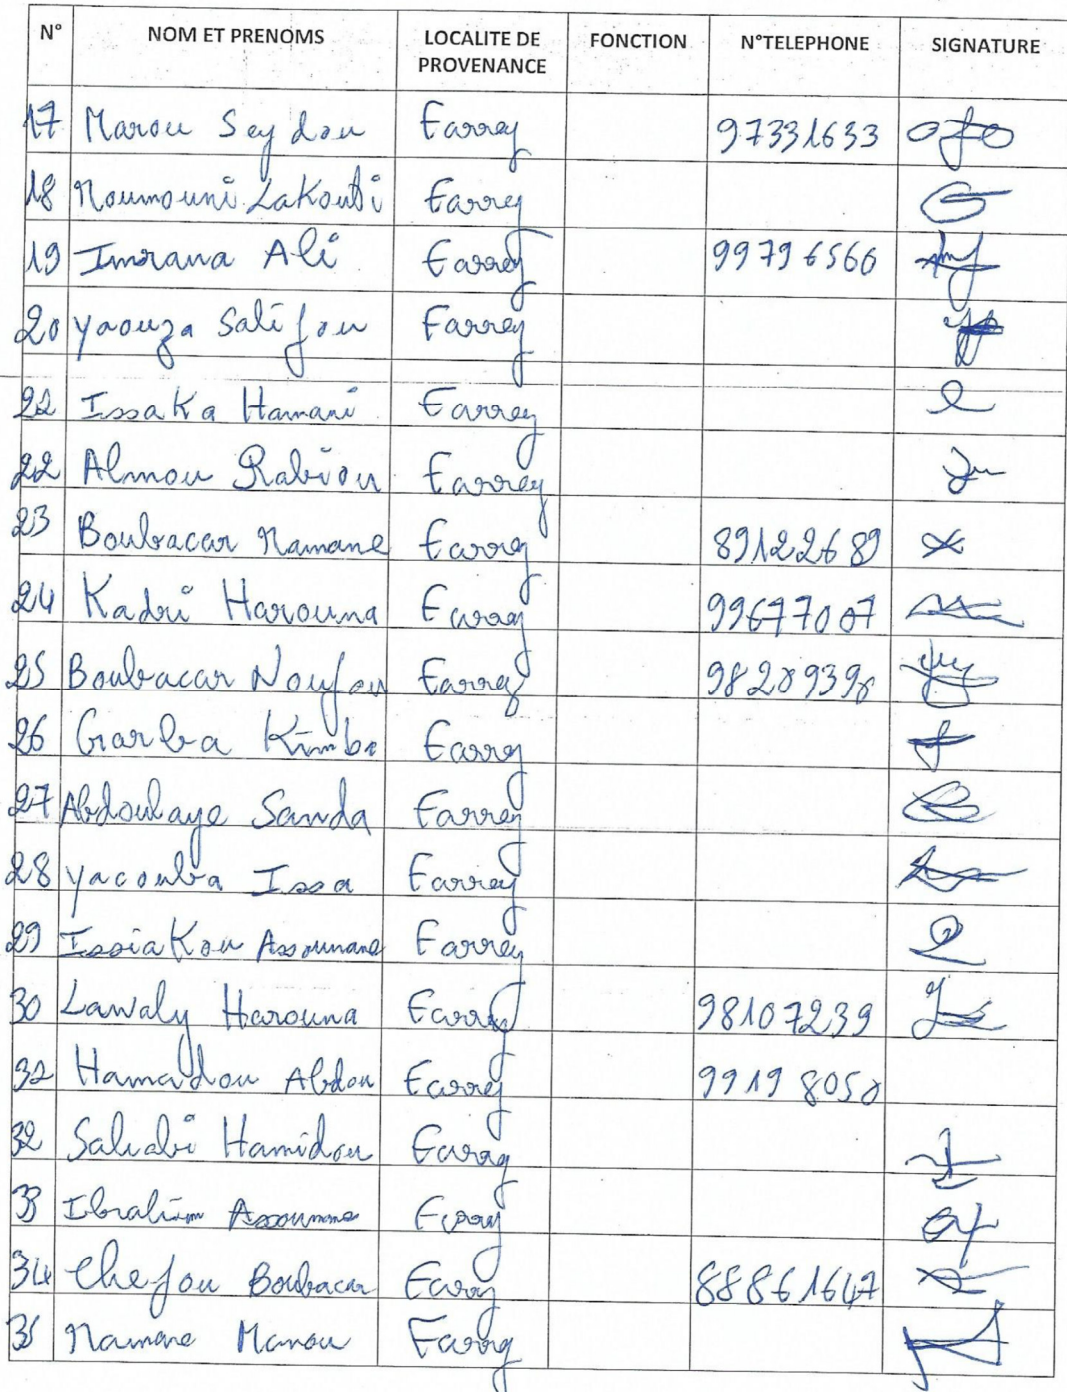 N° NOM ET PRENOMS LOCALITE DE PROVENANCE FONCTION N°TELEPHONE SIGNATURE
17 Marou Seydou Farrey 97331633
18 Moumouni Zakoubi Farrey
19 Imrana Ali Farrey 99796566
20 Yaouza Salifou Farrey
21 Issaka Hamani Farrey
22 Almou Rabiou Farrey
23 Boubacar Namane Farrey 89122689
24 Kadri Harouna Farrey 99677007
25 Boubacar Noufou Farrey 98289398
26 Garba Kimba Farrey
27 Abdoulaye Sanda Farrey
28 Yacouba Issa Farrey
29 Issiakou Assoumane Farrey
30 Lawaly Harouna Farrey 98107239
31 Hamadou Abdou Farrey 99198050
32 Sahabi Hamidou Farrey
33 Ibrahim Assoumane Farrey
34 Chefou Boubacar Farrey 88861647
35 Namane Manou Farrey